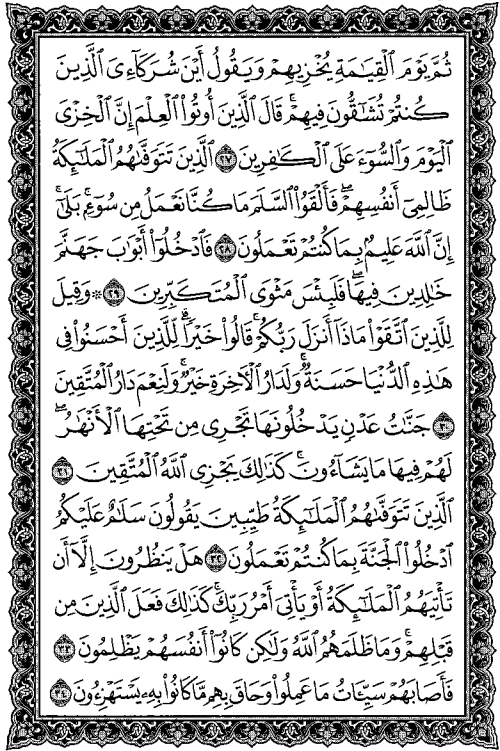 ثُمَّ يَوْمَ ٱلْقِيَٰمَةِ يُخْزِيهِمْ وَيَقُولُ أَيْنَ شُرَكَآءِىَ ٱلَّذِينَ
كُنتُمْ تُشَٰٓقُّونَ فِيهِمْ ۚ قَالَ ٱلَّذِينَ أُوتُوا۟ ٱلْعِلْمَ إِنَّ ٱلْخِزْىَ
ٱلْيَوْمَ وَٱلسُّوٓءَ عَلَى ٱلْكَٰفِرِينَ ٢٧ ٱلَّذِينَ تَتَوَفَّىٰهُمُ ٱلْمَلَٰٓئِكَةُ
ظَالِمِىٓ أَنفُسِهِمْ ۖ فَأَلْقَوُا۟ ٱلسَّلَمَ مَا كُنَّا نَعْمَلُ مِن سُوٓءٍۭ ۚ بَلَىٰٓ
إِنَّ ٱللَّهَ عَلِيمٌۢ بِمَا كُنتُمْ تَعْمَلُونَ ٢٨ فَٱدْخُلُوٓا۟ أَبْوَٰبَ جَهَنَّمَ
خَٰلِدِينَ فِيهَا ۖ فَلَبِئْسَ مَثْوَى ٱلْمُتَكَبِّرِينَ ٢٩ ۞ وَقِيلَ
لِلَّذِينَ ٱتَّقَوْا۟ مَاذَآ أَنزَلَ رَبُّكُمْ ۚ قَالُوا۟ خَيْرًا ۗ لِّلَّذِينَ أَحْسَنُوا۟ فِى
هَٰذِهِ ٱلدُّنْيَا حَسَنَةٌ ۚ وَلَدَارُ ٱلْءَاخِرَةِ خَيْرٌ ۚ وَلَنِعْمَ دَارُ ٱلْمُتَّقِينَ
٣٠ جَنَّٰتُ عَدْنٍ يَدْخُلُونَهَا تَجْرِى مِن تَحْتِهَا ٱلْأَنْهَٰرُ ۖ
لَهُمْ فِيهَا مَا يَشَآءُونَ ۚ كَذَٰلِكَ يَجْزِى ٱللَّهُ ٱلْمُتَّقِينَ ٣١
ٱلَّذِينَ تَتَوَفَّىٰهُمُ ٱلْمَلَٰٓئِكَةُ طَيِّبِينَ ۙ يَقُولُونَ سَلَٰمٌ عَلَيْكُمُ
ٱدْخُلُوا۟ ٱلْجَنَّةَ بِمَا كُنتُمْ تَعْمَلُونَ ٣٢ هَلْ يَنظُرُونَ إِلَّآ أَن
تَأْتِيَهُمُ ٱلْمَلَٰٓئِكَةُ أَوْ يَأْتِىَ أَمْرُ رَبِّكَ ۚ كَذَٰلِكَ فَعَلَ ٱلَّذِينَ مِن
قَبْلِهِمْ ۚ وَمَا ظَلَمَهُمُ ٱللَّهُ وَلَٰكِن كَانُوٓا۟ أَنفُسَهُمْ يَظْلِمُونَ ٣٣
فَأَصَابَهُمْ سَيِّـَٔاتُ مَا عَمِلُوا۟ وَحَاقَ بِهِم مَّا كَانُوا۟ بِهِۦ يَسْتَهْزِءُونَ ٣٤